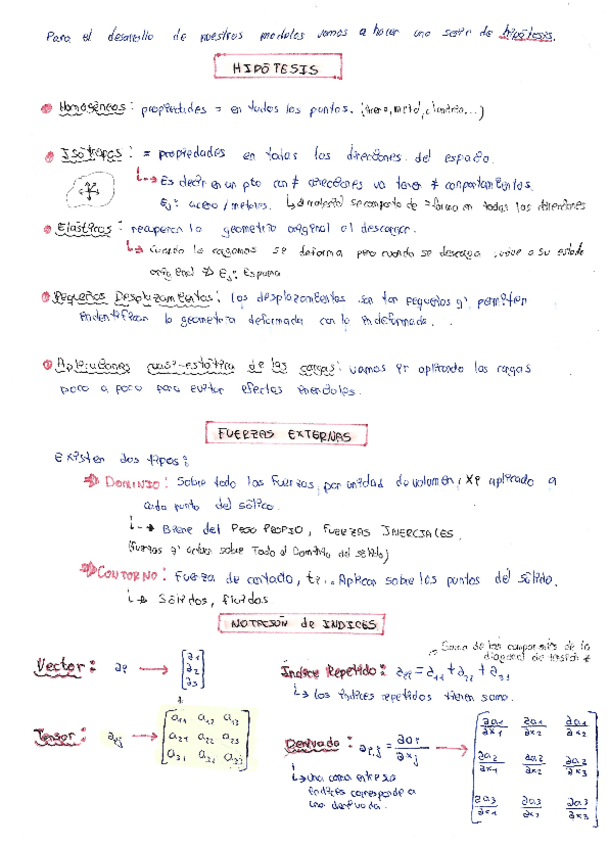 Para el desarrollo de nuestros modelos vamos a hacer una serie de hipótesis.
HIPÓTESIS
Homogéneos: propiedades = en todos los puntos.
Isótropos: = propiedades en todas las direcciones del espacio.
Es decir en un pto con ≠ direcciones va tener ≠ comportamientos.
Ej: acero / metales. material se comporta de = forma en todas las direcciones
Elásticos: recuperan la geometría original al descargar.
Cuando lo cargamos se deforma pero cuando se descarga, vuelve a su estado
original Ej: Espuma
Pequeños Desplazamientos: los desplazamientos son tan pequeños q' permiten
identificar la geometría deformada con la indeformada.
Aplicaciones cuasi-estática de las cargas: vamos ir aplicando las cargas
poco a poco para evitar efectos inerciales.
FUERZAS EXTERNAS
Existen dos tipos:
DOMINIO: Sobre todo las fuerzas, por unidad de volumen, Xi aplicado a
cada punto del sólido.
Biene del PESO PROPIO, FUERZAS INERCIALES.
(fuerzas q' actúan sobre Todo el Dominio del sólido)
CONTORNO: Fuerza de contacto, ti.. Aplican sobre los puntos del sólido.
Sólidos, fluidos
NOTACIÓN de INDICES
Suma de las componentes de la
diagonal de
Vector: ai → [a1 a2 a3]
Índice Repetido: aii = a11 + a22 + a33
los índices repetidos tienen suma.
Tensor: aij → [a11 a12 a13
a21 a22 a23
a31 a32 a33]
Derivada: ai,j = ∂ai/∂xj → [∂a1/∂x1 ∂a1/∂x2 ∂a1/∂x2
∂a2/∂x1 ∂a2/∂x2 ∂a2/∂x3
∂a3/∂x1 ∂a3/∂x2 ∂a3/∂x3]
una coma entre 2
índices corresponde a
una derivada.